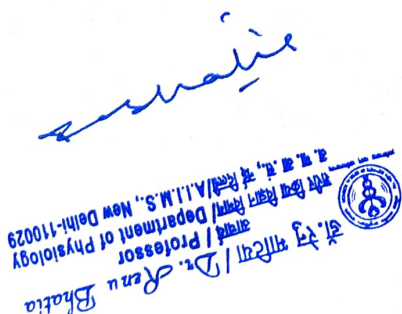 डॉ. रेनू भाटिया / Dr. Renu Bhatia
आचार्य / Professor
शरीर क्रिया विज्ञान विभाग / Department of Physiology
अ. भा. आ. सं., नई दिल्ली/A.I.I.M.S., New Delhi-110029
Bhatia